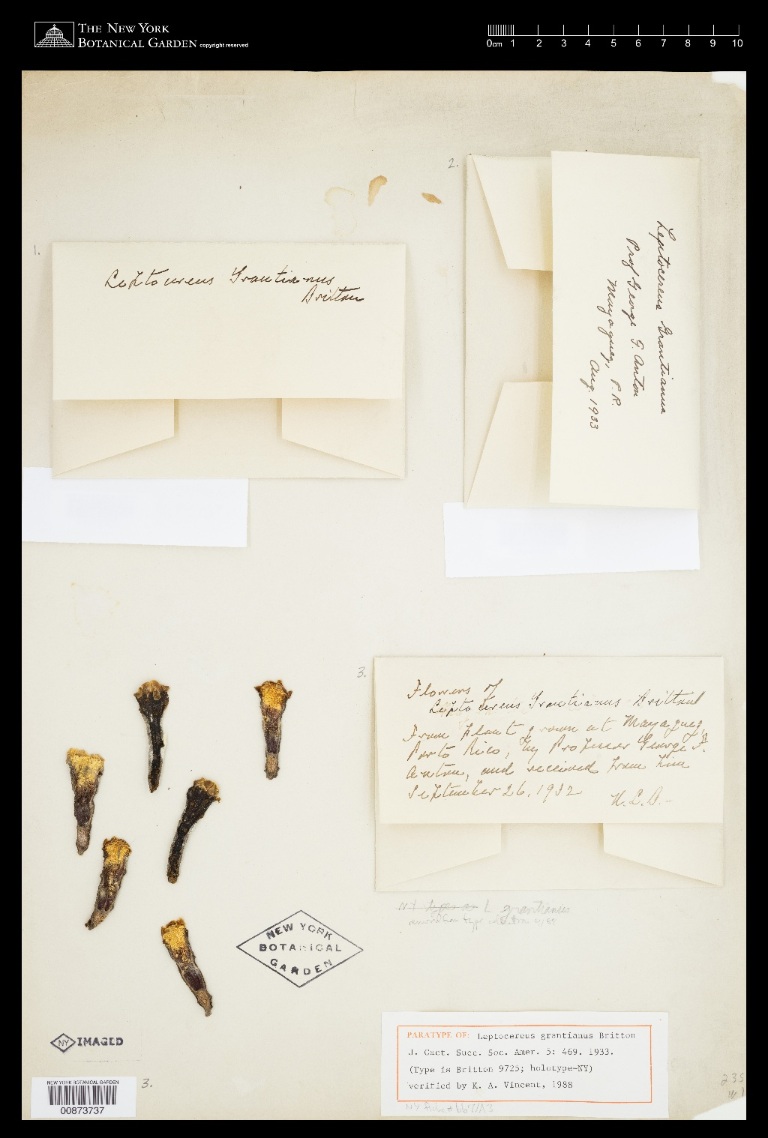 THE NEW YORK
BOTANICAL GARDEN copyright reserved
0cm 1 2 3 4 5 6 7 8 9 10
1.
Leptocereus Grantianus
Britton
2.
Leptocereus Grantianus
Prof George G. Anton
Mayaguez, P.R.
Aug 1933
3.
Flowers of
Leptocereus Grantianus Britton
From plant grown at Mayaguez,
Porto Rico, by Professor George G.
Anton, and received from him
September 26, 1932 N.L.B.
L grantianus
NEW YORK
BOTANICAL
GARDEN
NY IMAGED
NEW YORK BOTANICAL GARDEN
00873737
3.
PARATYPE OF: Leptocereus grantianus Britton
J. Cact. Succ. Soc. Amer. 5: 469. 1933.
(Type is Britton 9725; holotype-NY)
verified by K. A. Vincent, 1988
235